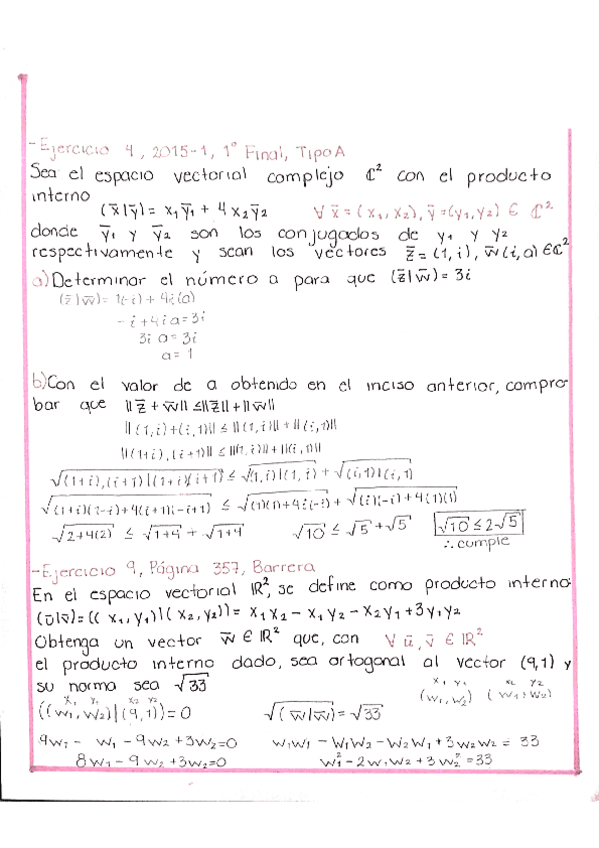 -Ejercicio 4, 2015-1, 1° Final, Tipo A
Sea el espacio vectorial complejo ℂ² con el producto
interno
(x̄|ȳ) = x₁ȳ₁ + 4x₂ȳ₂ ∀ x̄ = (x₁, x₂), ȳ = (y₁, y₂) ∈ ℂ²
donde ȳ₁ y ȳ₂ son los conjugados de y₁ y y₂
respectivamente y sean los vectores z̄ = (1, i), w̄(i, a) ∈ ℂ²
a) Determinar el número a para que (z̄|w̄) = 3i
(z̄|w̄) = 1(-i) + 4i(a)
-i + 4ia = 3i
3i a = 3i
a = 1
b) Con el valor de a obtenido en el inciso anterior, compro-
bar que ||z̄ + w̄|| ≤ ||z̄|| + ||w̄||
||(1,i)+(i,1)|| ≤ ||(1,i)|| + ||(i,1)||
||(1+i), (i+1)|| ≤ ||(1,i)|| + ||(i,1)||
√(1+i),(i+1)|(1+i)(i+1) ≤ √(1,i)|(1,i) + √(i,1)|(i,1)
√(1+i)(1-i)+4(i+1)(-i+1) ≤ √(1)(1)+4i(-i) + √(i)(-i)+4(1)(1)
√2+4(2) ≤ √1+4 + √1+4 √10 ≤ √5 + √5 √10 ≤ 2√5
∴ cumple
-Ejercicio 9, Página 357, Barrera
En el espacio vectorial ℝ², se define como producto interno
(ū|v̄) = ((x₁, y₁)|(x₂, y₂)) = x₁x₂ - x₁y₂ - x₂y₁ + 3y₁y₂
Obtenga un vector w̄ ∈ ℝ² que, con ∀ ū, v̄ ∈ ℝ²
el producto interno dado, sea ortogonal al vector (9,1) y
su norma sea √33
x₁ y₁ x₂ y₂
(w₁, w₂) (w₁, w₂)
x₁ y₁ x₂ y₂
((w₁, w₂)|(9,1)) = 0 √(w̄|w̄) = √33
9w₁ - w₁ - 9w₂ + 3w₂ = 0 w₁w₁ - w₁w₂ - w₂w₁ + 3w₂w₂ = 33
8w₁ - 9w₂ + 3w₂ = 0 w₁² - 2w₁w₂ + 3w₂² = 33